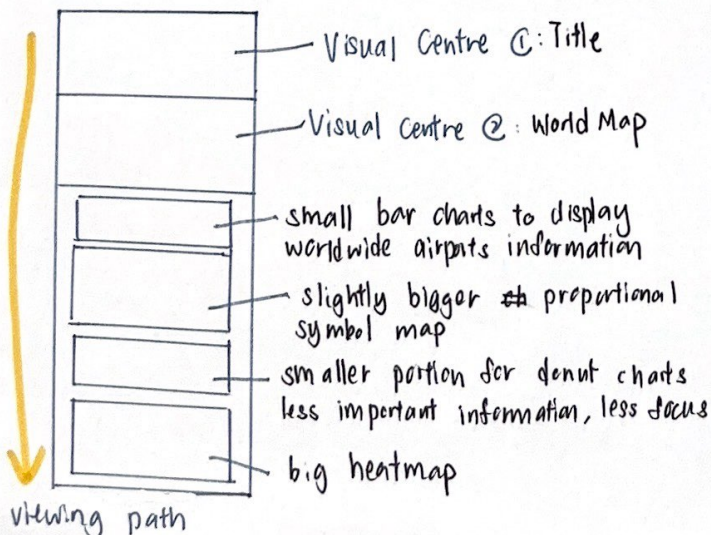 Visual Centre ①: Title
Visual Centre ②: World Map
small bar charts to display
worldwide airports information
slightly bigger proportional
symbol map
smaller portion for donut charts
less important information, less focus
big heatmap
viewing path